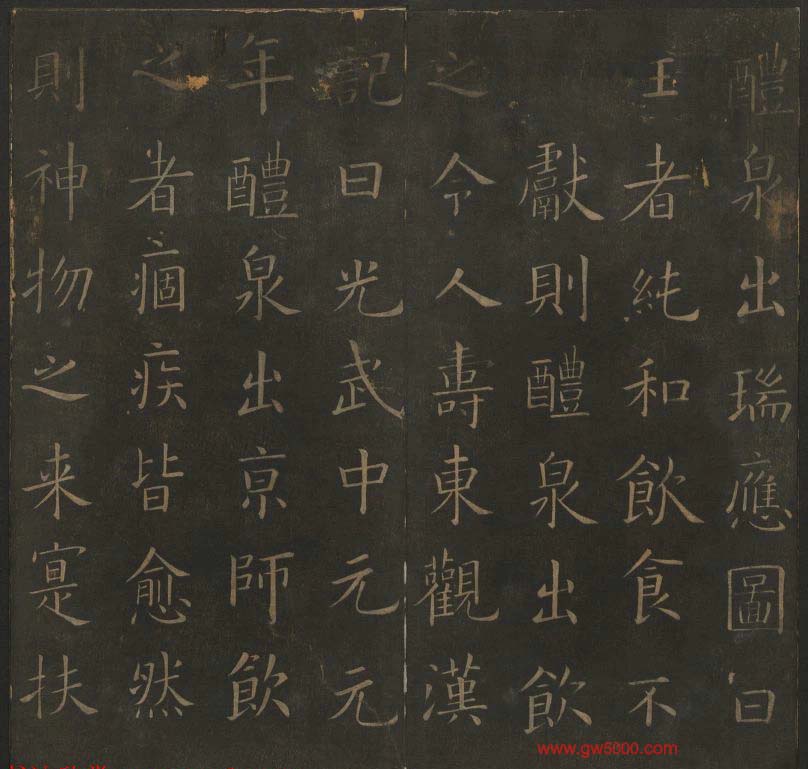 醴泉出瑞應圖曰
王者純和飲食不
獻則醴泉出飲
之令人壽東觀漢
記曰光武中元元
年醴泉出亰師飲
之者痼疾皆愈然
則神物之来寔扶
www.gw5000.com